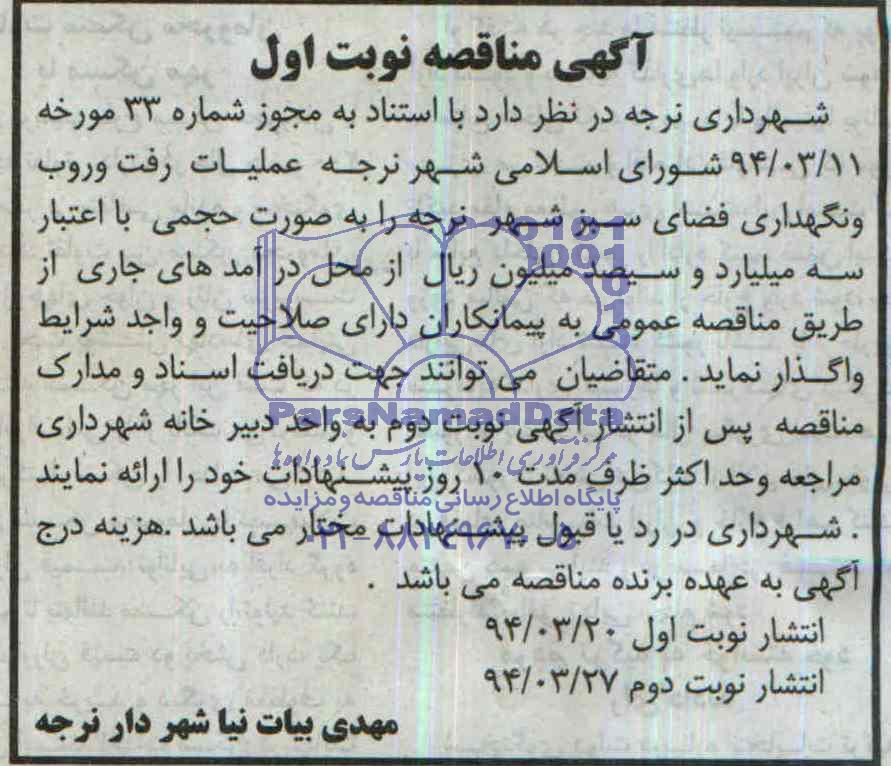 آگهی مناقصه نوبت اول
شهرداری نرجه در نظر دارد با استناد به مجوز شماره ۳۳ مورخه
۹۴/۰۳/۱۱ شورای اسلامی شهر نرجه عملیات رفت وروب
ونگهداری فضای سبز شهر نرجه را به صورت حجمی با اعتبار
سه میلیارد و سیصد میلیون ریال از محل در آمد های جاری از
طریق مناقصه عمومی به پیمانکاران دارای صلاحیت و واجد شرایط
واگذار نماید . متقاضیان می توانند جهت دریافت اسناد و مدارک
ParsNamadData
مناقصه پس از انتشار آگهی نوبت دوم به واحد دبیر خانه شهرداری
مرکز فرآوری اطلاعات پارس نماد داده ها
مراجعه وحد اکثر ظرف مدت ۱۰ روز پیشنهادات خود را ارائه نمایند
پایگاه اطلاع رسانی مناقصه و مزایده
. شهرداری در رد یا قبول پیشنهادات مختار می باشد .هزینه درج
آگهی به عهده برنده مناقصه می باشد .
انتشار نوبت اول ۹۴/۰۳/۲۰
انتشار نوبت دوم ۹۴/۰۳/۲۷
مهدی بیات نیا شهر دار نرجه